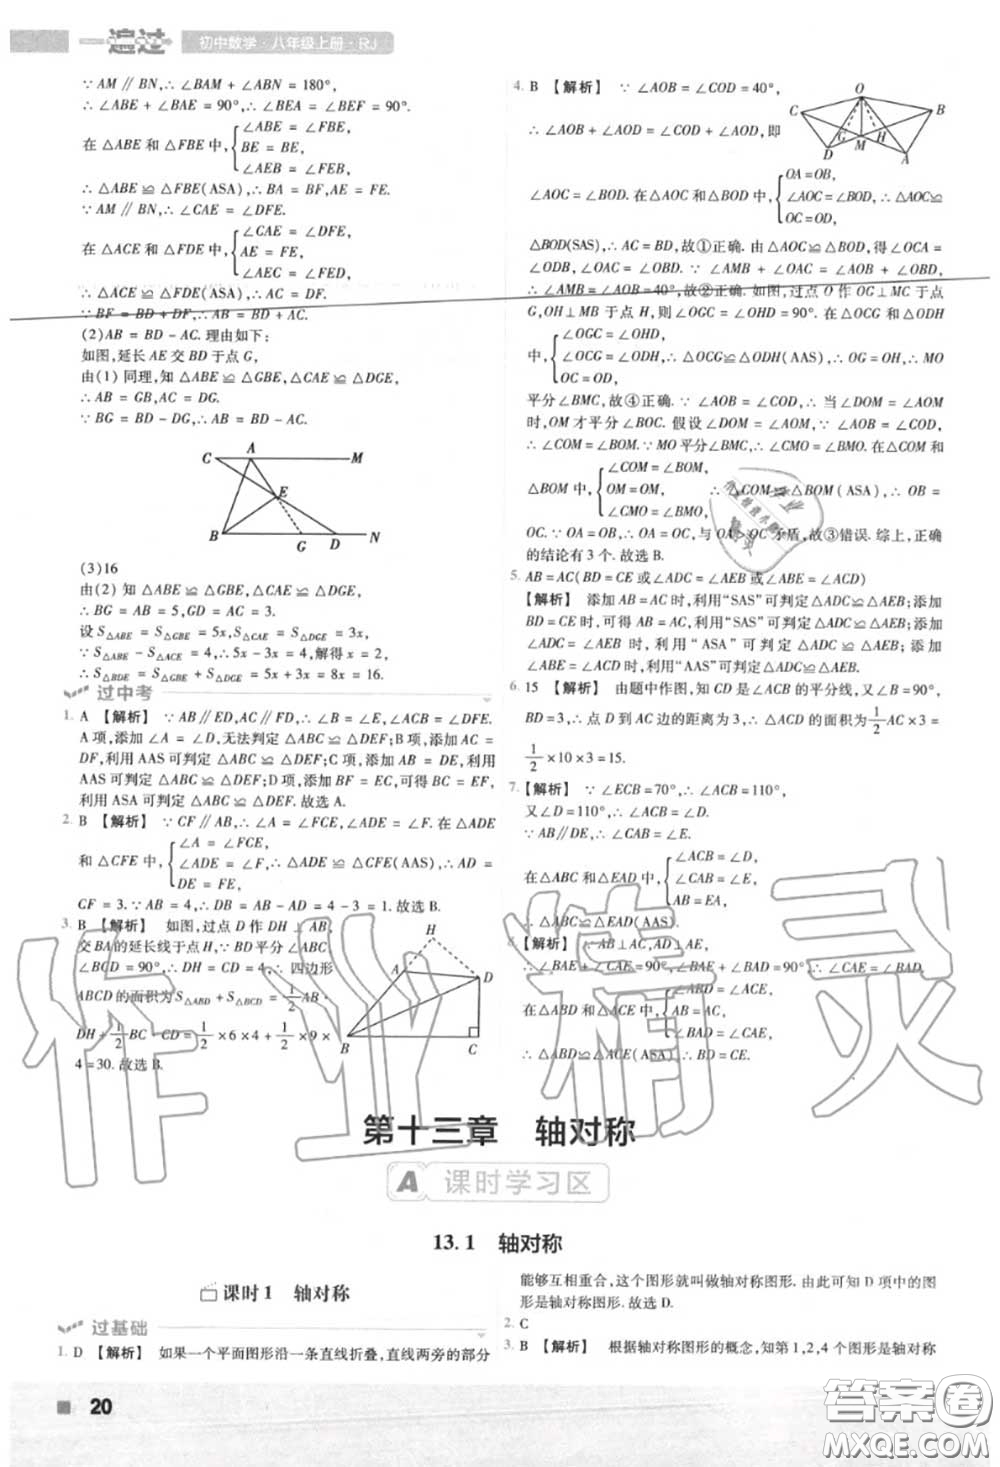 一遍过 初中数学·八年级上册·RJ
∵ AM∥BN, ∴ ∠BAM + ∠ABN = 180°,
∴ ∠ABE + ∠BAE = 90°, ∴ ∠BEA = ∠BEF = 90°.
在 △ABE 和 △FBE 中, { ∠ABE = ∠FBE,
BE = BE,
∠AEB = ∠FEB,
∴ △ABE ≌ △FBE(ASA), ∴ BA = BF, AE = FE.
∵ AM∥BN, ∴ ∠CAE = ∠DFE.
在 △ACE 和 △FDE 中, { ∠CAE = ∠DFE,
AE = FE,
∠AEC = ∠FED,
∴ △ACE ≌ △FDE(ASA), ∴ AC = DF.
∵ BF = BD + DF, ∴ AB = BD + AC.
(2)AB = BD − AC. 理由如下:
如图,延长 AE 交 BD 于点 G,
由(1)同理,知 △ABE ≌ △GBE, △CAE ≌ △DGE,
∴ AB = GB, AC = DG.
∵ BG = BD − DG, ∴ AB = BD − AC.
C A M
E
B G D N
(3)16
由(2)知 △ABE ≌ △GBE, △CAE ≌ △DGE,
∴ BG = AB = 5, GD = AC = 3.
设 S△ABE = S△GBE = 5x, S△CAE = S△DGE = 3x,
∵ S△ABE − S△ACE = 4, ∴ 5x − 3x = 4, 解得 x = 2,
∴ S△BDE = S△ABE + S△ACE = 5x + 3x = 8x = 16.
过中考
1. A 【解析】 ∵ AB∥ED, AC∥FD, ∴ ∠B = ∠E, ∠ACB = ∠DFE.
A 项,添加 ∠A = ∠D,无法判定 △ABC ≌ △DEF;B 项,添加 AC =
DF,利用 AAS 可判定 △ABC ≌ △DEF;C 项,添加 AB = ED,利用
AAS 可判定 △ABC ≌ △DEF;D 项,添加 BF = EC,可得 BC = EF,
利用 ASA 可判定 △ABC ≌ △DEF. 故选 A.
2. B 【解析】 ∵ CF∥AB, ∴ ∠A = ∠FCE, ∠ADE = ∠F. 在 △ADE
和 △CFE 中, { ∠A = ∠FCE,
∠ADE = ∠F,
DE = FE,
∴ △ADE ≌ △CFE(AAS), ∴ AD =
CF = 3. ∵ AB = 4, ∴ DB = AB − AD = 4 − 3 = 1. 故选 B.
3. B 【解析】 如图,过点 D 作 DH ⊥ AB,
交 BA 的延长线于点 H, ∵ BD 平分 ∠ABC,
∠BCD = 90°, ∴ DH = CD = 4, ∴ 四边形
ABCD 的面积为 S△ABD + S△BCD = 1/2 AB ·
DH + 1/2 BC · CD = 1/2 × 6 × 4 + 1/2 × 9 ×
4 = 30. 故选 B.
H
A D
B C
4. B 【解析】 ∵ ∠AOB = ∠COD = 40°,
∴ ∠AOB + ∠AOD = ∠COD + ∠AOD, 即
O
C B
G H
M
D A
∠AOC = ∠BOD. 在 △AOC 和 △BOD 中, { OA = OB,
∠AOC = ∠BOD,
OC = OD,
∴ △AOC ≌
△BOD(SAS), ∴ AC = BD, 故①正确. 由 △AOC ≌ △BOD, 得 ∠OCA =
∠ODB, ∠OAC = ∠OBD. ∵ ∠AMB + ∠OAC = ∠AOB + ∠OBD,
∴ ∠AMB = ∠AOB = 40°, 故②正确. 如图,过点 O 作 OG ⊥ MC 于点
G, OH ⊥ MB 于点 H, 则 ∠OGC = ∠OHD = 90°. 在 △OCG 和 △ODH
中, { ∠OGC = ∠OHD,
∠OCG = ∠ODH,
OC = OD,
∴ △OCG ≌ △ODH(AAS), ∴ OG = OH, ∴ MO
平分 ∠BMC, 故④正确. ∵ ∠AOB = ∠COD, ∴ 当 ∠DOM = ∠AOM
时,OM 才平分 ∠BOC. 假设 ∠DOM = ∠AOM, ∵ ∠AOB = ∠COD,
∴ ∠COM = ∠BOM. ∵ MO 平分 ∠BMC, ∴ ∠CMO = ∠BMO. 在 △COM 和
△BOM 中, { ∠COM = ∠BOM,
OM = OM,
∠CMO = ∠BMO,
∴ △COM ≌ △BOM(ASA), ∴ OB =
OC. ∵ OA = OB, ∴ OA = OC, 与 OA > OC 矛盾, 故③错误. 综上,正确
的结论有 3 个. 故选 B.
5. AB = AC(BD = CE 或 ∠ADC = ∠AEB 或 ∠ABE = ∠ACD)
【解析】 添加 AB = AC 时,利用“SAS”可判定 △ADC ≌ △AEB;添加
BD = CE 时,可得 AB = AC,利用“SAS”可判定 △ADC ≌ △AEB;添加
∠ADC = ∠AEB 时,利用“ASA”可判定 △ADC ≌ △AEB;添加
∠ABE = ∠ACD 时,利用“AAS”可判定 △ADC ≌ △AEB.
6. 15 【解析】 由题中作图,知 CD 是 ∠ACB 的平分线,又 ∠B = 90°,
BD = 3, ∴ 点 D 到 AC 边的距离为 3, ∴ △ACD 的面积为 1/2 AC × 3 =
1/2 × 10 × 3 = 15.
7. 【解析】 ∵ ∠ECB = 70°, ∴ ∠ACB = 110°,
又 ∠D = 110°, ∴ ∠ACB = ∠D.
∵ AB∥DE, ∴ ∠CAB = ∠E.
在 △ABC 和 △EAD 中, { ∠ACB = ∠D,
∠CAB = ∠E,
AB = EA,
∴ △ABC ≌ △EAD(AAS).
8. 【解析】 ∵ AB ⊥ AC, AD ⊥ AE,
∴ ∠BAE + ∠CAE = 90°, ∠BAE + ∠BAD = 90°, ∴ ∠CAE = ∠BAD.
在 △ABD 和 △ACE 中, { ∠ABD = ∠ACE,
AB = AC,
∠BAD = ∠CAE,
∴ △ABD ≌ △ACE(ASA), ∴ BD = CE.
第十三章 轴对称
A 课时学习区
13.1 轴对称
课时1 轴对称
过基础
1. D 【解析】 如果一个平面图形沿一条直线折叠,直线两旁的部分
能够互相重合,这个图形就叫做轴对称图形. 由此可知 D 项中的图
形是轴对称图形. 故选 D.
2. C
3. B 【解析】 根据轴对称图形的概念,知第 1,2,4 个图形是轴对称
20
作业精灵
答案圈
MXQE.COM